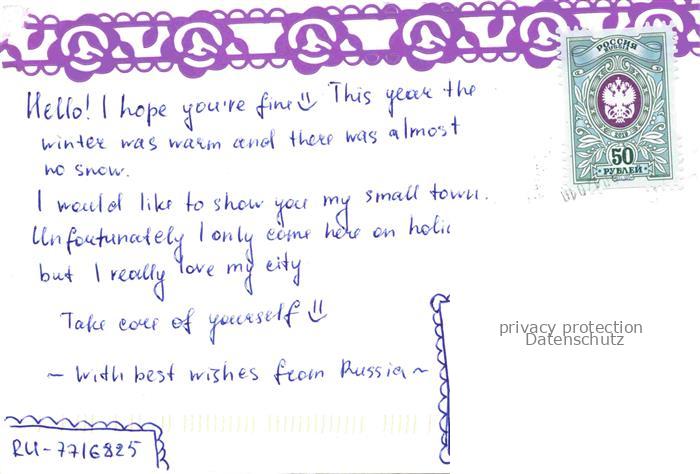 Hello! I hope you're fine This year the
winter was warm and there was almost
no snow.
I would like to show you my small town.
Unfortunately I only come here on holi
but I really love my city
Take care of yourself
~ With best wishes from Russia ~
RU-7716825
РОССИЯ
50
РУБЛЕЙ
privacy protection
Datenschutz